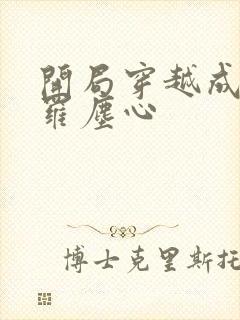 開局穿越成
羅塵心
博士克里斯托